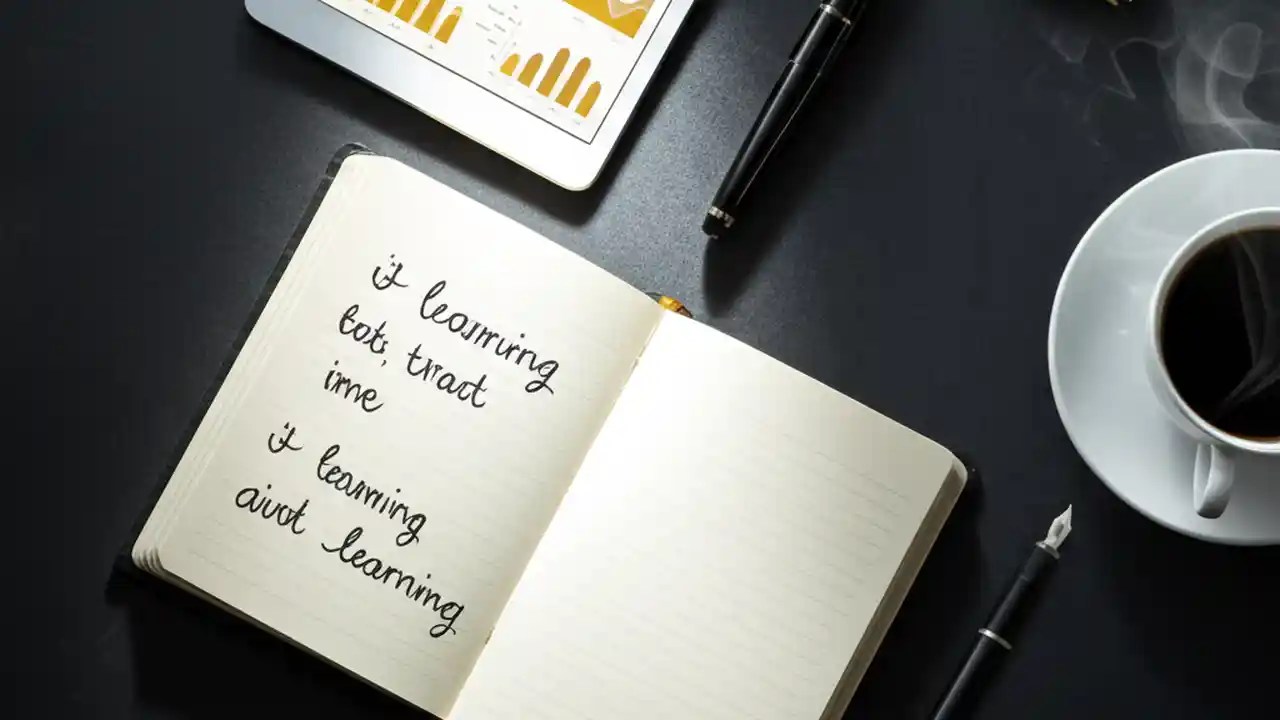 it learning
bot, trust
ime
it learning
aivot learning